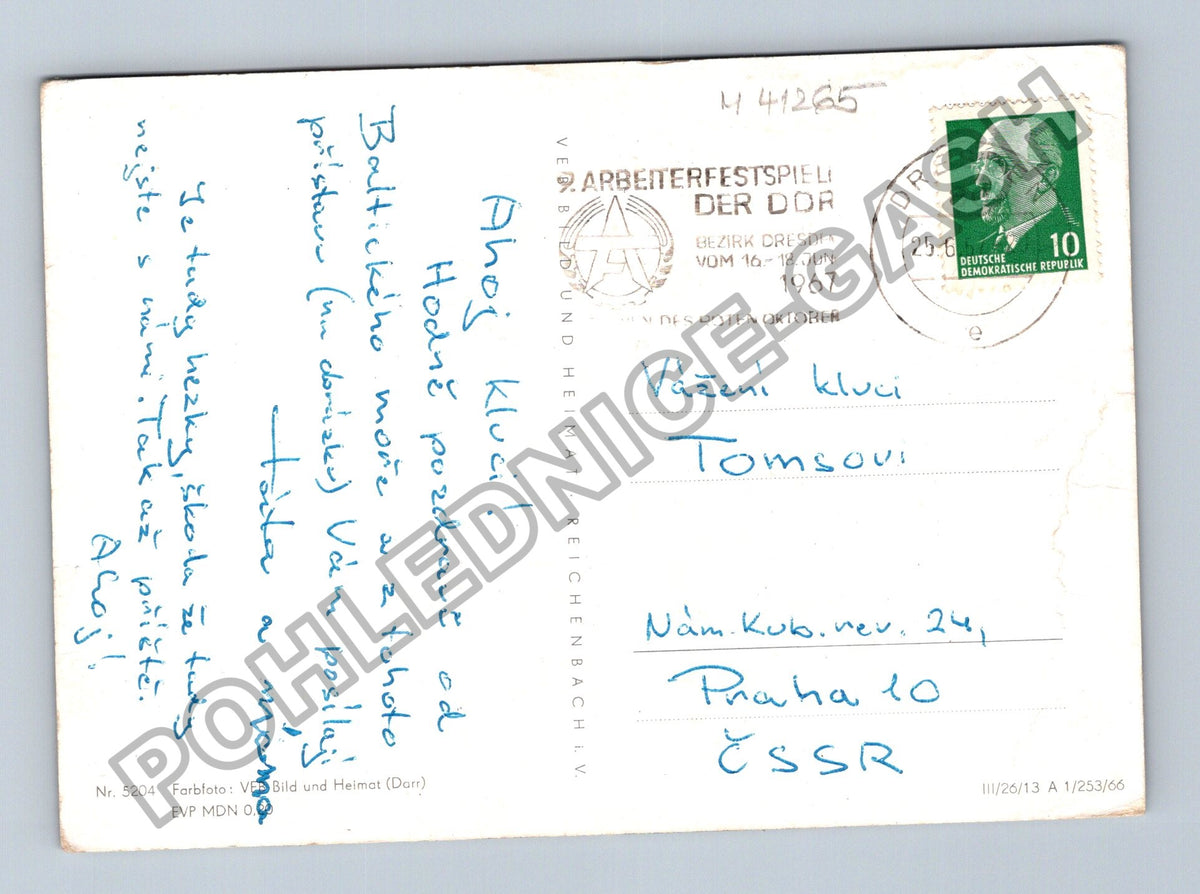 M 41265
9. ARBEITERFESTSPIELE
DER DDR
BEZIRK DRESDEN
VOM 16.-18. JUN
1967
DES ROTEN OKTOBER
DRES
25.6.67
e
10
DEUTSCHE
DEMOKRATISCHE REPUBLIK
Ahoj kluci!
Hodně pozdravů od
Baltického moře a z tohoto
přístavu (na obrázku) Vám posílají
táta a máma
Je tudy hezky, škoda že tudy
nejste s námi. Tak až příště.
Ahoj!
VEB BILD UND HEIMAT REICHENBACH i. V.
Vážení kluci
Tomsovi
Nám. Kub. rev. 24,
Praha 10
ČSSR
Nr. 5204 Farbfoto: VEB Bild und Heimat (Darr)
EVP MDN 0,20
III/26/13 A 1/253/66
POHLEDNICE-GASH